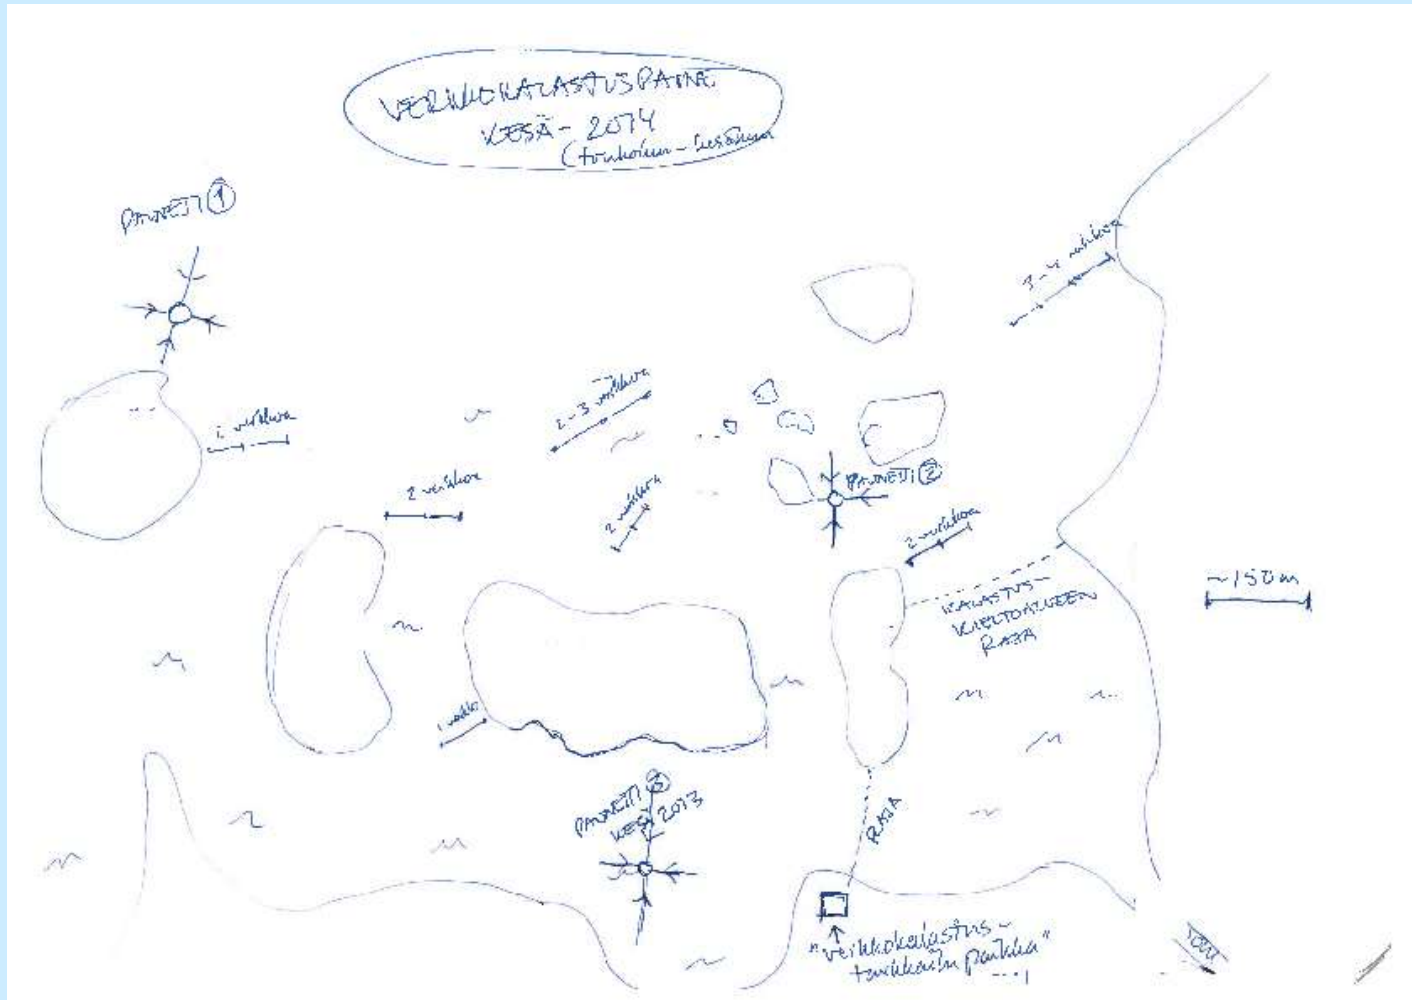 VERKKOKALASTUSPAINE
KESÄ - 2014
(toukokuu - kesäkuu
PAUNETTI 1
3-4 verkkoa
2 verkkoa
2-3 verkkoa
2 verkkoa
2 verkkoa
PAUNETTI 2
2 verkkoa
KALASTUS-
KIELTOALUEEN
RAJA
~150m
1 verkko
PAUNETTI 3
KESÄ 2013
RAJA
"verkkokalastus-
tarkkailu paikka"